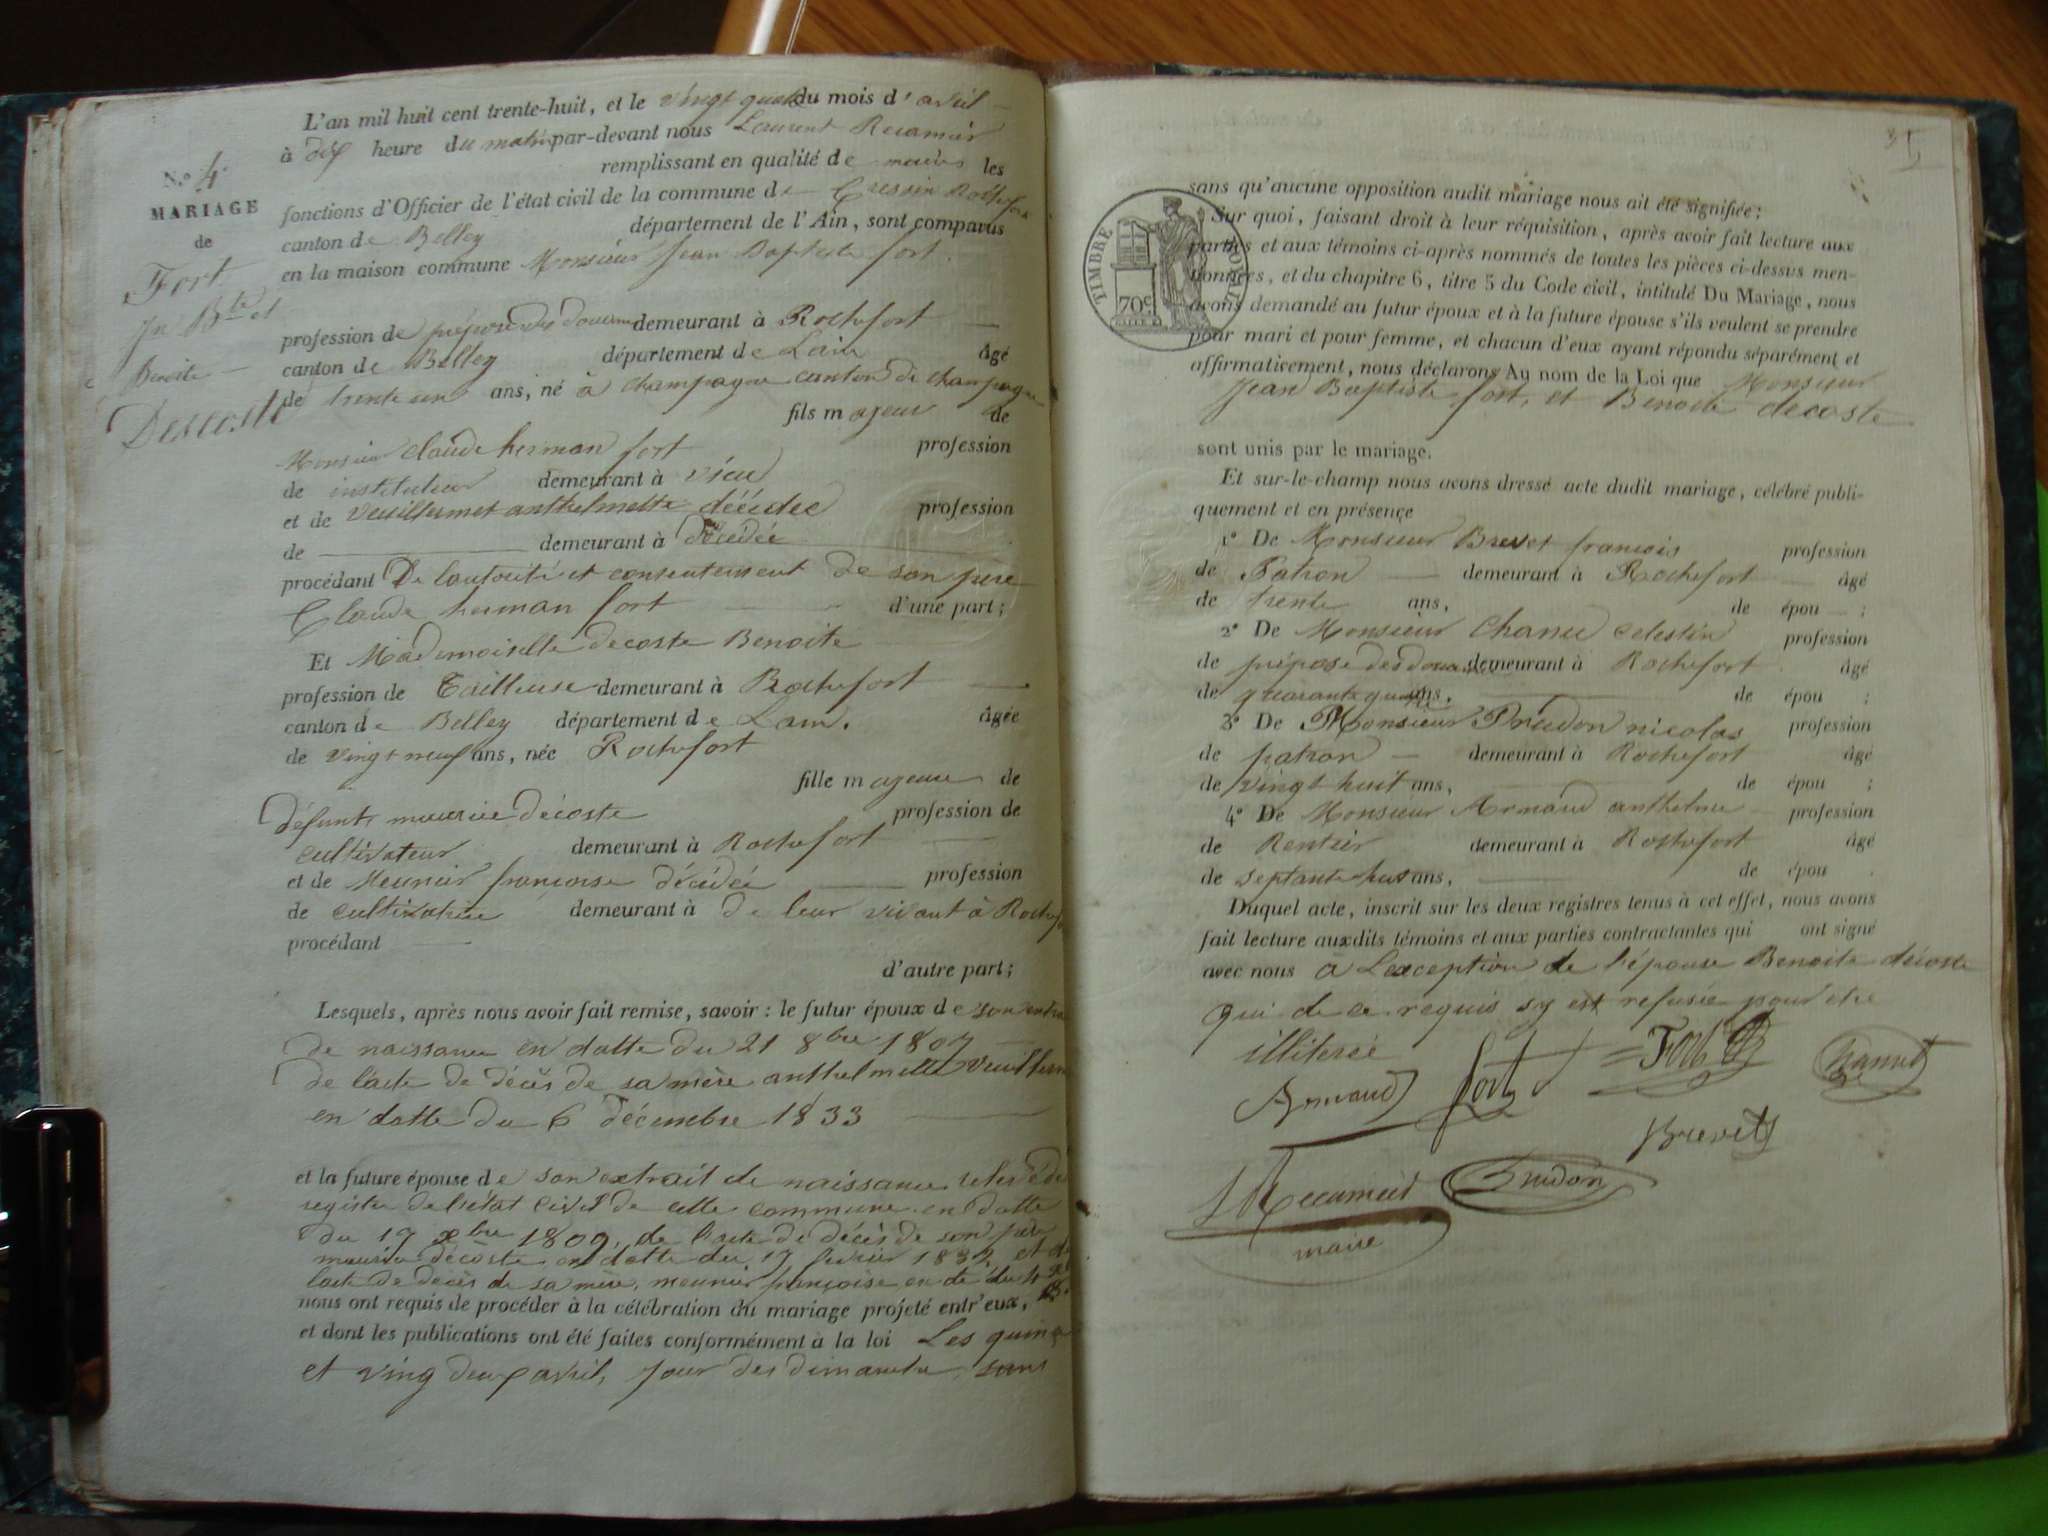 N.º 4
MARIAGE
de
Fort
Jn Bte et
Benoite
Descoste
L'an mil huit cent trente-huit, et le vingt quatre du mois d'avril
à dix heure du matin par-devant nous Laurent Recamier
remplissant en qualité de maire les
fonctions d'Officier de l'état civil de la commune de Cressin Rochefort
canton de Belley département de l'Ain, sont comparus
en la maison commune Monsieur Jean Baptiste fort
profession de préposé des douanes demeurant à Rochefort
canton de Belley département de Lain âgé
de trente un ans, né à champagne canton de champagne
fils majeur de
Monsieur claude herman fort profession
de instituteur demeurant à vieu
et de vuillermet anthelmette décédée profession
de demeurant à décédée
procédant De lautorité et consentement de son père
Claude herman fort d'une part;
Et Mademoiselle decoste Benoite
profession de Tailleuse demeurant à Rochefort
canton de Belley département de Lain. âgée
de vingt neuf ans, née Rochefort
fille majeure de
défunt maurice décoste profession de
cultivateur demeurant à Rochefort
et de Meunier françoise décédée profession
de cultivatrice demeurant à de leur vivant à Rochefo
procédant
d'autre part;
Lesquels, après nous avoir fait remise, savoir: le futur époux de son
de naissance en datte du 21 8bre 1807
de lacte de décès de sa mère anthelmette vuillerm
en datte du 6 décembre 1833
et la future épouse de son extrait de naissance
registre de l'état civil de cette commune en datte
du 19 xbre 1809, de lacte de décès de son père
maurice décoste en datte du 17 février 1832 et de
lacte de décès de sa mère, meunier françoise en
nous ont requis de procéder à la célébration du mariage projeté entr'eux,
et dont les publications ont été faites conformément à la loi Les quinze
et ving deux avril, jour des dimanche sans
TIMBRE ROYAL
70c
sans qu'aucune opposition audit mariage nous ait été signifiée;
Sur quoi, faisant droit à leur réquisition, après avoir fait lecture aux
parties et aux témoins ci-après nommés de toutes les pièces ci-dessus men-
tionnées, et du chapitre 6, titre 5 du Code civil, intitulé Du Mariage, nous
avons demandé au futur époux et à la future épouse s'ils veulent se prendre
pour mari et pour femme, et chacun d'eux ayant répondu séparément et
affirmativement, nous déclarons Au nom de la Loi que Monsieur
Jean Baptiste fort, et Benoite decoste
sont unis par le mariage.
Et sur-le-champ nous avons dressé acte dudit mariage, célébré publi-
quement et en présence
1º De Monsieur Brevet françois profession
de Patron demeurant à Rochefort âgé
de trente ans, de épou ;
2º De Monsieur Chanel celestin profession
de préposé des douanes demeurant à Rochefort âgé
de quarante quatre ans, de épou ;
3º De Monsieur Prudon nicolas profession
de patron demeurant à Rochefort âgé
de vingt huit ans, de épou ;
4º De Monsieur Armaud anthelme profession
de Rentier demeurant à Rochefort âgé
de septante huit ans, de épou
Duquel acte, inscrit sur les deux registres tenus à cet effet, nous avons
fait lecture auxdits témoins et aux parties contractantes qui ont signé
avec nous à Lexception de l'épouse Benoite décoste
qui de ce requis sy est refusée pour être
illiterée
Armaud fort Fort Channel
Brevet
Recamier Prudon
maire